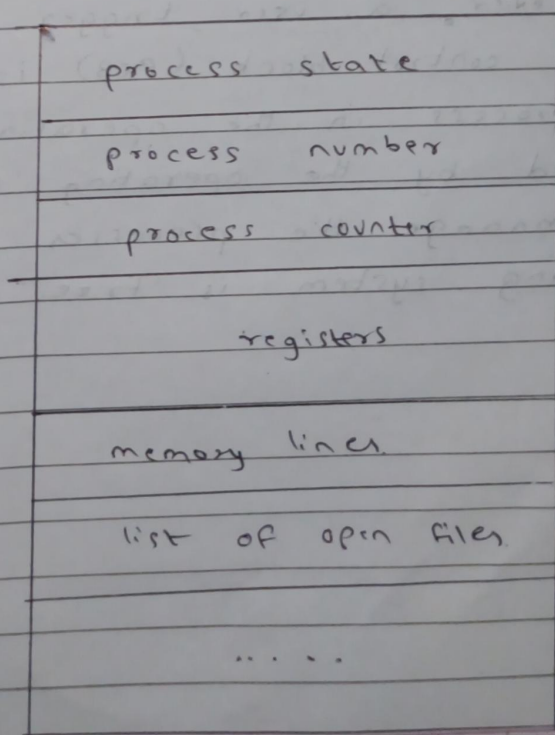 process state
process number
process counter
registers
memory lines
list of open files
.....